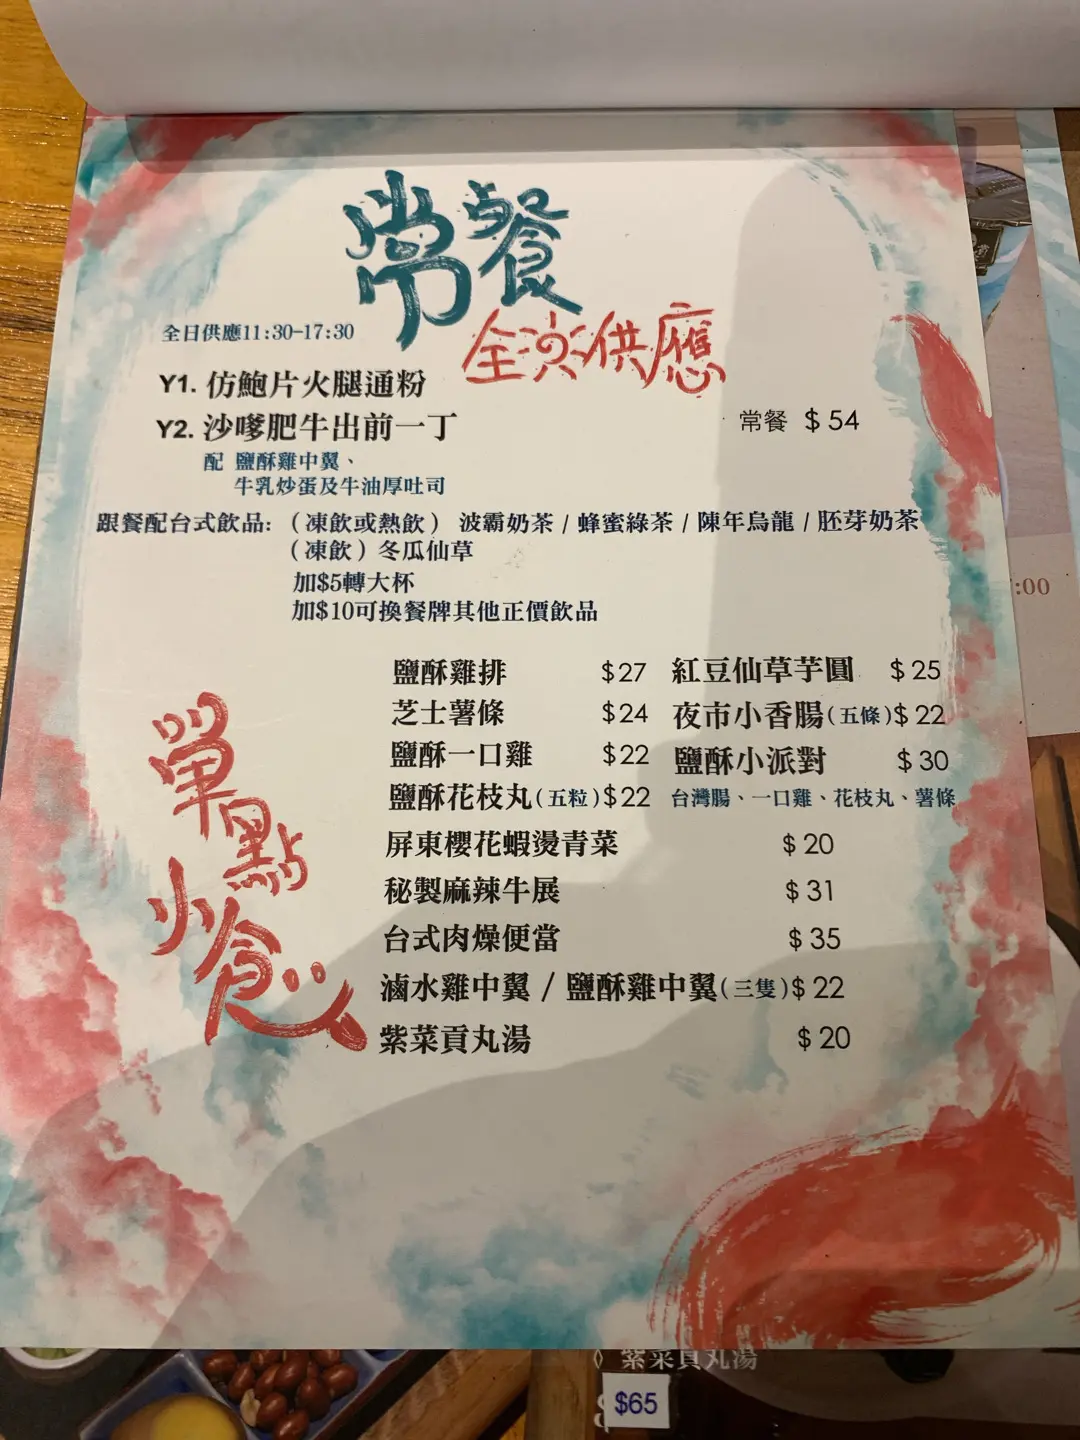 常餐
全日供應
全日供應11:30-17:30
Y1. 仿鮑片火腿通粉
Y2. 沙嗲肥牛出前一丁
常餐 $54
配 鹽酥雞中翼、
牛乳炒蛋及牛油厚吐司
跟餐配台式飲品：（凍飲或熱飲）波霸奶茶 / 蜂蜜綠茶 / 陳年烏龍 / 胚芽奶茶
（凍飲）冬瓜仙草
加$5轉大杯
加$10可換餐牌其他正價飲品
單點小食
鹽酥雞排 $27
芝士薯條 $24
鹽酥一口雞 $22
鹽酥花枝丸(五粒) $22
紅豆仙草芋圓 $25
夜市小香腸(五條) $22
鹽酥小派對 $30
台灣腸、一口雞、花枝丸、薯條
屏東櫻花蝦燙青菜 $20
秘製麻辣牛展 $31
台式肉燥便當 $35
滷水雞中翼 / 鹽酥雞中翼(三隻) $22
紫菜貢丸湯 $20
:00
紫菜貢丸湯
$65